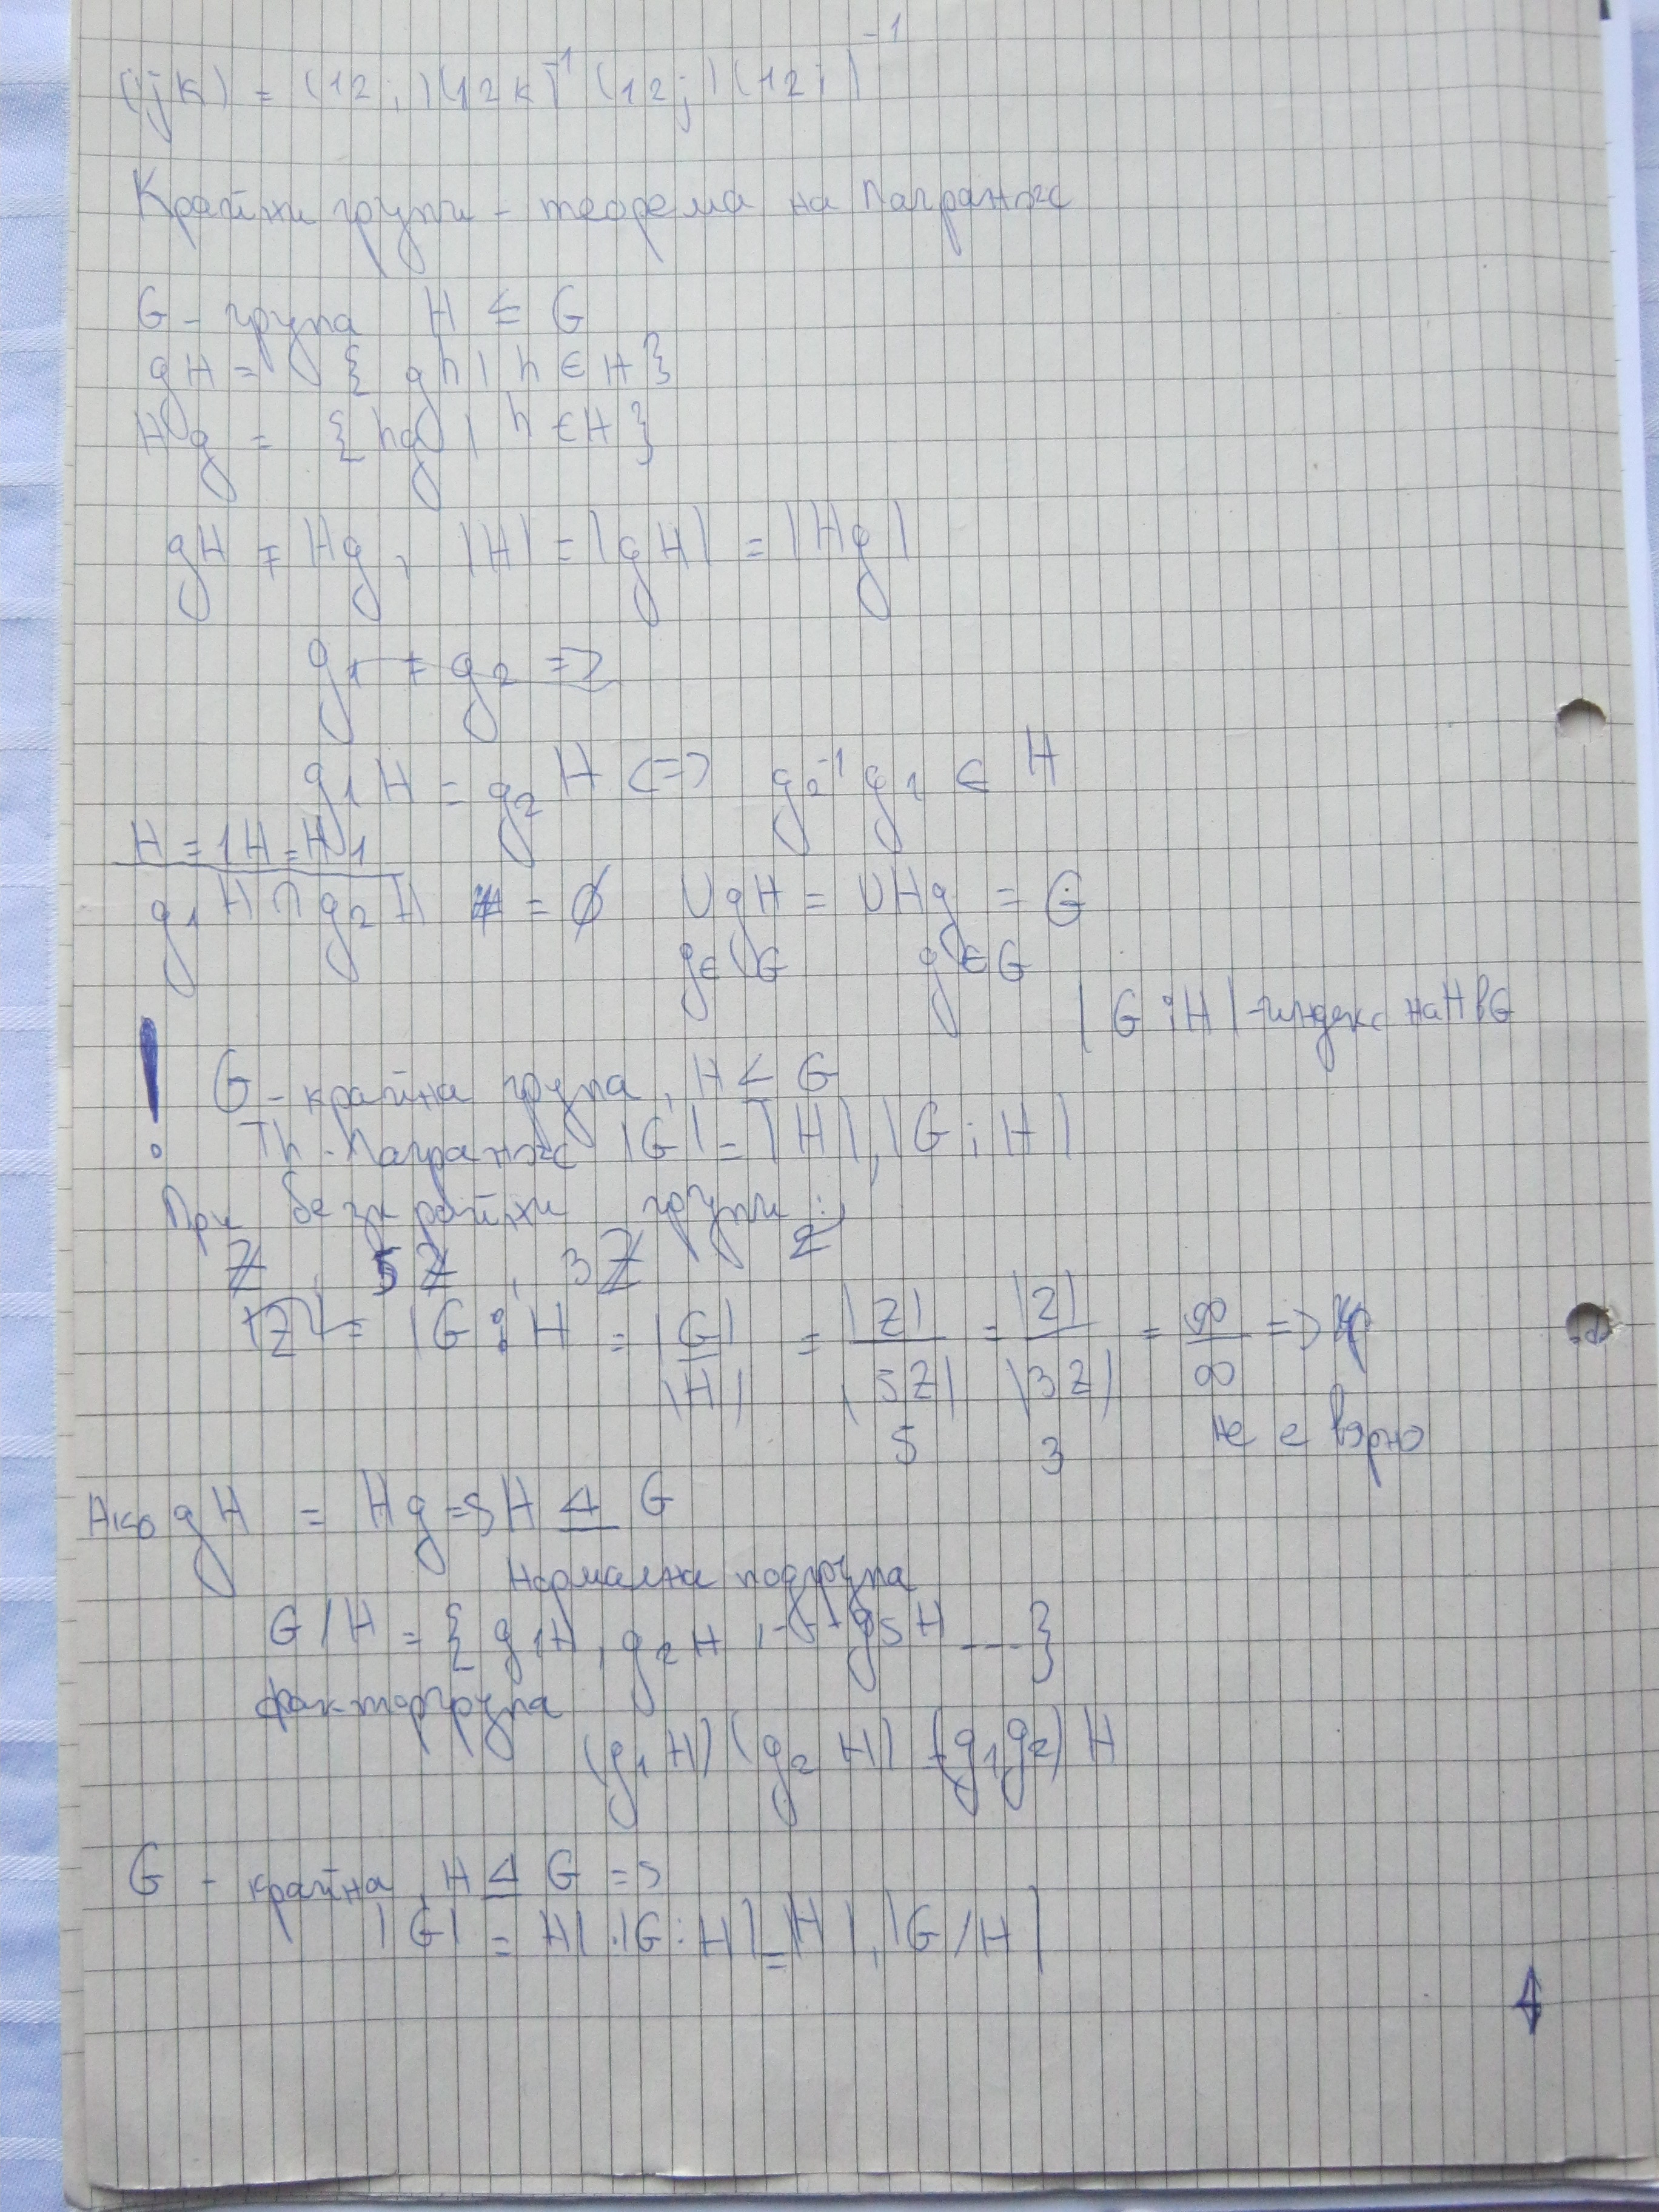 (ijk) = (12i)(12k)⁻¹(12j)(12i)⁻¹
Крайни групи - теорема на Лагранж
G - група H ≤ G
gH = { gh | h ∈ H }
Hg = { hg | h ∈ H }
gH ≠ Hg, |H| = |gH| = |Hg|
g₁ ≠ g₂ =>
g₁H = g₂H <=> g₂⁻¹g₁ ∈ H
H = 1H = H1
g₁H ∩ g₂H = ∅ ∪gH = ∪Hg = G
g∈G g∈G
|G:H| - индекс на H в G
! G - крайна група, H ≤ G
Th - Лагранж |G| = |H|.|G:H|
При безкрайни групи:
Z, 5Z, 3Z
|Z| = |G:H = |G|/|H| = |Z|/|5Z| = |Z|/|3Z| = ∞/∞ =>
5 3 не е вярно
Ако gH = Hg => H ⊴ G
нормална подгрупа
G/H = { g₁H, g₂H, ... gₛH ... }
факторгрупа
(g₁H)(g₂H) = (g₁g₂)H
G - крайна, H ⊴ G =>
|G| = H|.|G:H| = |H|.|G/H|
4